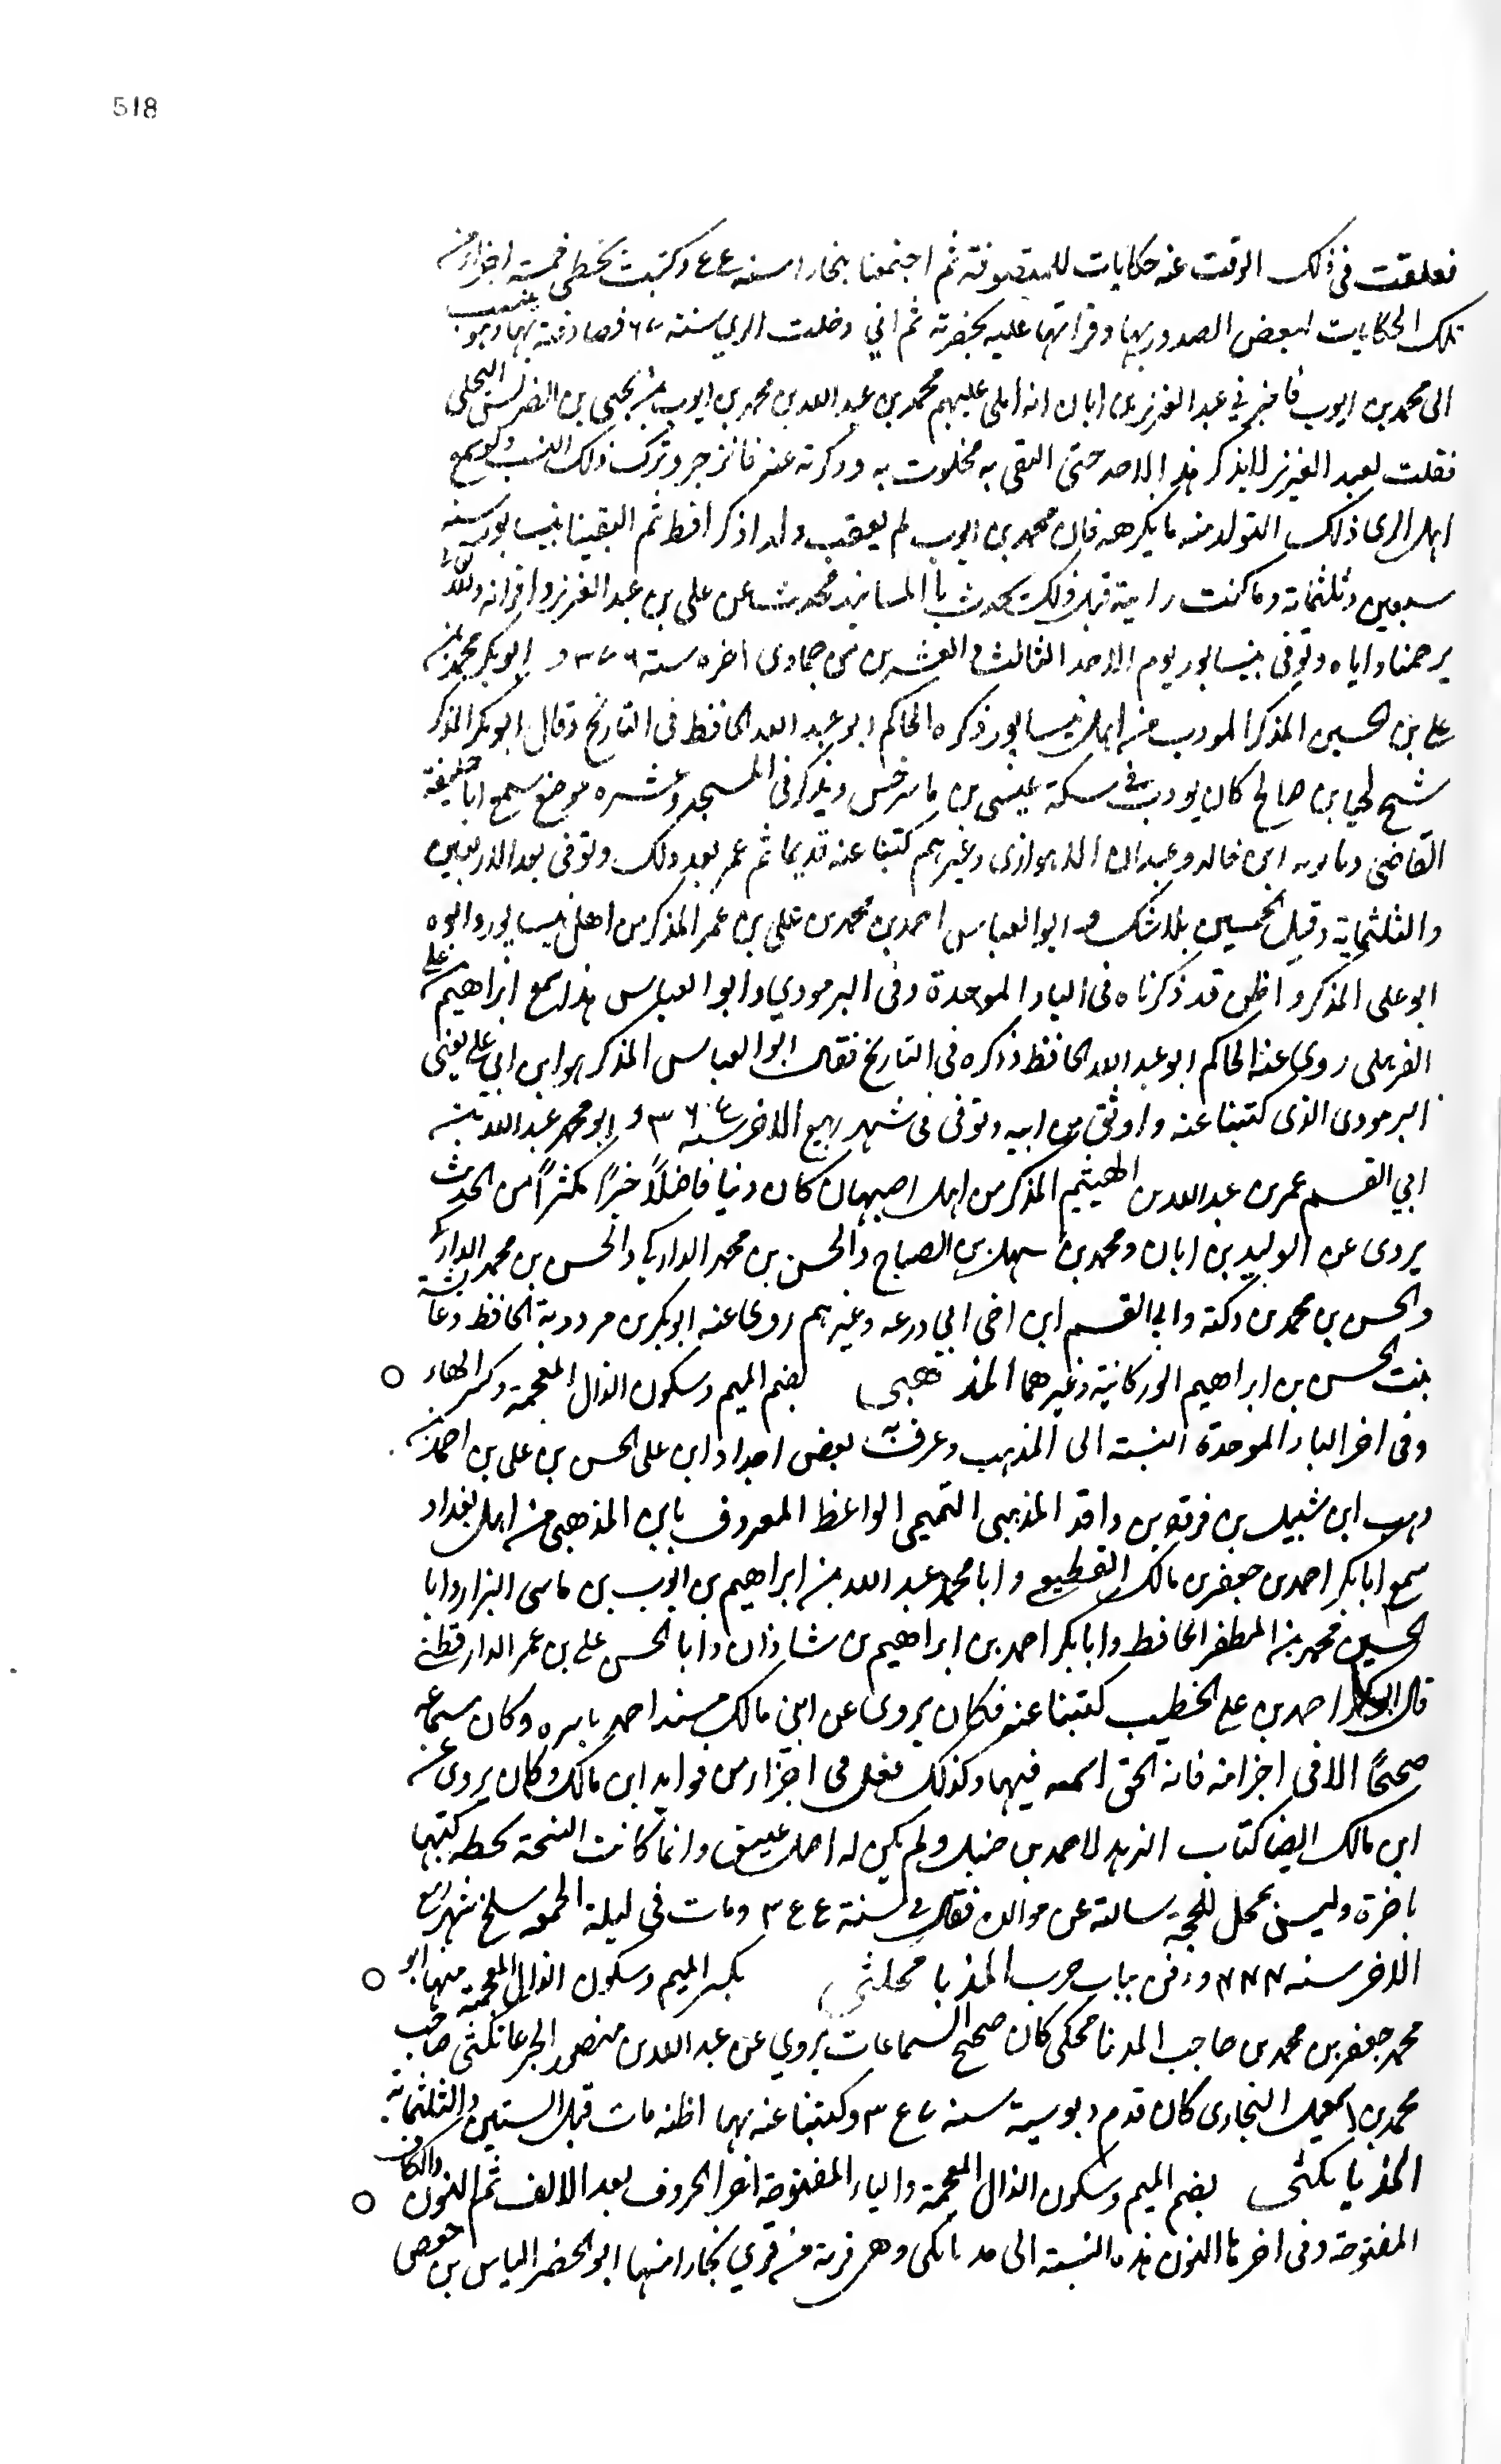 518
فعلقت فى ذلك الوقت عنه حكايات للمتصوفة ثم اجتمعنا ببخارا سنه ٤٤ وكتبت بخطى خمسة اجزا من
تلك الحكايات لبعض الصدور بها وقراتها عليه بحضرته ثم اني دخلت الري سنة ٦٧ فصادفته بها وهو ينتسب
الى محمد بن ايوب فاخبرني عبد العزيز بن ابان انه املى عليهم محمد بن عبد الله بن محمد بن ايوب بن يحيى بن الضريس البجلى
فقلت لعبد العزيز لا يذكر هذا لاحد حتى التقى به فخلوت به وذكرته عنه فانزجر وترك ذلك النسب ولو سمع
اهل الرى ذلك لتولد منه ما يكرهه فان محمد بن ايوب لم يعقب ولدا ذكرا قط ثم التقينا بنيسابور سنه
سبعين وثلثماته وما كنت رايته قبل ذلك يحدث بالمسانيد فحدث عن على بن عبد العزيز واقرانه والله
يرحمنا واياه وتوفى بنيسابور يوم الاحد الثالث والعشرين من جمادى اخره سنة ٣٧٦ و ابو بكر محمد بن
على بن الحسين المذكر المودب من اهل نيسابور ذكره الحاكم ابو عبد الله الحافظ فى التاريخ وقال ابو بكر المذكر
شيخ لحيا بن صالح كان يودب فى سكة عيسى بن ماسرخس ويذكر فى المسجد وعشره موضع سمع ابا خليفة
القاضى وما ابن خالد وعبدان الاهوازى وغيرهم كتبنا عنه قديما ثم عمر بعد ذلك وتوفى بعد الاربعين
والثلثماية وقبل الخمسين بلا شك و ابو العباس احمد بن محمد بن على بن عمر المذكر من اهل نيسابور وابوه
ابو على المذكر واظن قد ذكرناه فى الباء الموحدة وفى البرمودي وابو العباس هذا سمع ابراهيم بن على
الذهلى روى عنه الحاكم ابو عبد الله الحافظ وذكره فى التاريخ فقال ابو العباس المذكر هو ابن ابى على يعنى
البرمودى الذى كتبنا عنه واوثق من ابيه وتوفى فى شهر ربيع الاخر سنه ٣٦٤ و ابو محمد عبد الله بن
ابي القسم عمر بن عبد الله بن الهيثم المذكر من اهل اصبهان كان دينا فاضلاً خيرًا مكثرًا من الحديث
يروى عن الوليد بن ابان ومحمد بن سهل بن الصباح والحسن بن محمد الداركى والحسن بن محمد الداركى
والحسن بن محمد بن دكة وابى القسم ابن اخى ابي درعه وغيرهم روى عنه ابو بكر بن مردوية الحافظ وعائشة
بنت الحسن بن ابراهيم الوركانية وغيرهما المذهبى بضم الميم وسكون الذال المعجمة وكسر الهاء
وفى اخر الباء الموحدة النسبة الى المذهب وعرف به بعض اجداد ابى على الحسن بن على بن احمد بن
وهب ابن شبيل بن فروة بن واقد المذهبى التميمى الواعظ المعروف بابن المذهبى من اهل بغداد
سمع ابا بكر احمد بن جعفر بن مالك القطيعى وابا محمد عبد الله بن ابراهيم بن ايوب بن ماسى البزار وابا
الحسين محمد بن المظفر الحافظ وابا بكر احمد بن ابراهيم بن شاذان وابا الحسن على بن عمر الدارقطنى
قال ابو بكر احمد بن على الخطيب كتبنا عنه فكان يروى عن ابن مالك مسند احمد باسره وكان سماعه
صحيحًا الا فى اجزا منه فانه الحق اسمه فيها وكذلك فعل فى اجزاء من فوايد ابن مالك وكان يروى عن
ابن مالك ايضا كتاب الزهد لاحمد بن حنبل ولم يكن له اصل عتيق وانما كانت النسخة بخطه كتبها
باخرة وليس بمحل للحجة سالته عن مولده فقال فى سنة ٣٤٤ ومات فى ليلة الجمعه سلخ شهر ربيع
الاخر سنه ٤٤٤ ودفن بباب حرب المذيامجكثى بكسر الميم وسكون الذال المعجمة منها ابو
محمد جعفر بن محمد بن حاجب كان صحيح السماعات يروي عن عبد الله بن منصور صاحب
محمد بن اسمعيل البخارى كان قدم دبوسية سنه ٣٤٧ وكتبنا عنه بها اظنه مات قبل الستين والثلثمائة
المذيانكثى بضم الميم وسكون الذال المعجمة والياء المفتوحة اخر الحروف بعد الالف ثم النون والكاف
المفتوحة وفى اخرها النون هذه النسبة الى وهى قرية من قري بخارا منها ابو الخضر الياس بن حفص